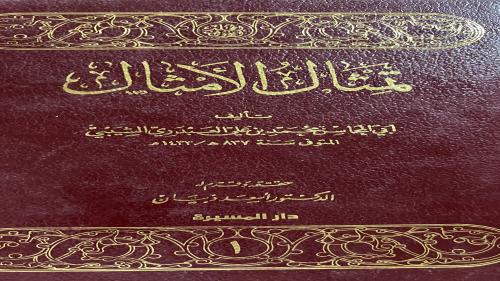 تمثال الأمثال
تأليف
أبي المحاسن محمد بن علي العبدري الشيبي
المتوفى سنة ٨٣٧ هـ/١٤٣٣ م
حققه وقدم له
الدكتور أسعد ذبيان
دار المسيرة
١